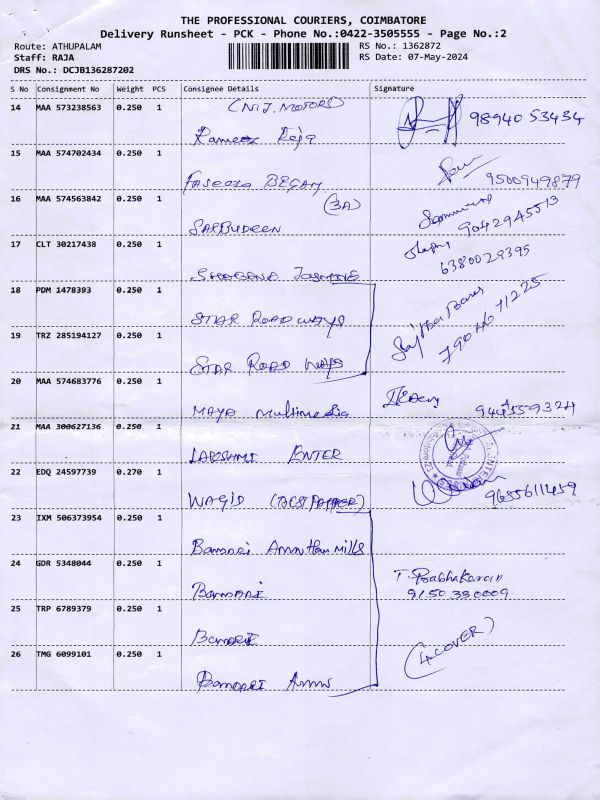 THE PROFESSIONAL COURIERS, COIMBATORE
Delivery Runsheet - PCK - Phone No.:0422-3505555 - Page No.:2
Route: ATHUPALAM
Staff: RAJA
DRS No.: DCJB136287202
RS No.: 1362872
RS Date: 07-May-2024
S No Consignment No Weight PCS Consignee Details Signature
(N.J. MOTORS)
14 MAA 573238563 0.250 1 Rameez Raja 98940 53434
15 MAA 574702434 0.250 1 Faseela BEGAM 9500949879
(3A)
16 MAA 574563842 0.250 1 SARBUDEEN 9042945513
17 CLT 30217438 0.250 1 SHABANA JASMINE 6380029395
18 PDM 1478393 0.250 1 STAR ROAD WAYS
19 TRZ 285194127 0.250 1 STAR ROAD WAYS 79046 71225
20 MAA 574683776 0.250 1 MAYA Multimedia
21 MAA 300627136 1 LAKSHMI ENTER
22 EDQ 24597739 0.270 1 WAGID 9655611459
23 IXM 506373954 0.250 1 Bannari Amman Mills
24 GDR 5348044 0.250 1 Bannari T. Prabhakaran
9150330009
25 TRP 6789379 0.250 1 Bannari
26 TMG 6099101 0.250 1 BANNARI Amm
(4 COVER)